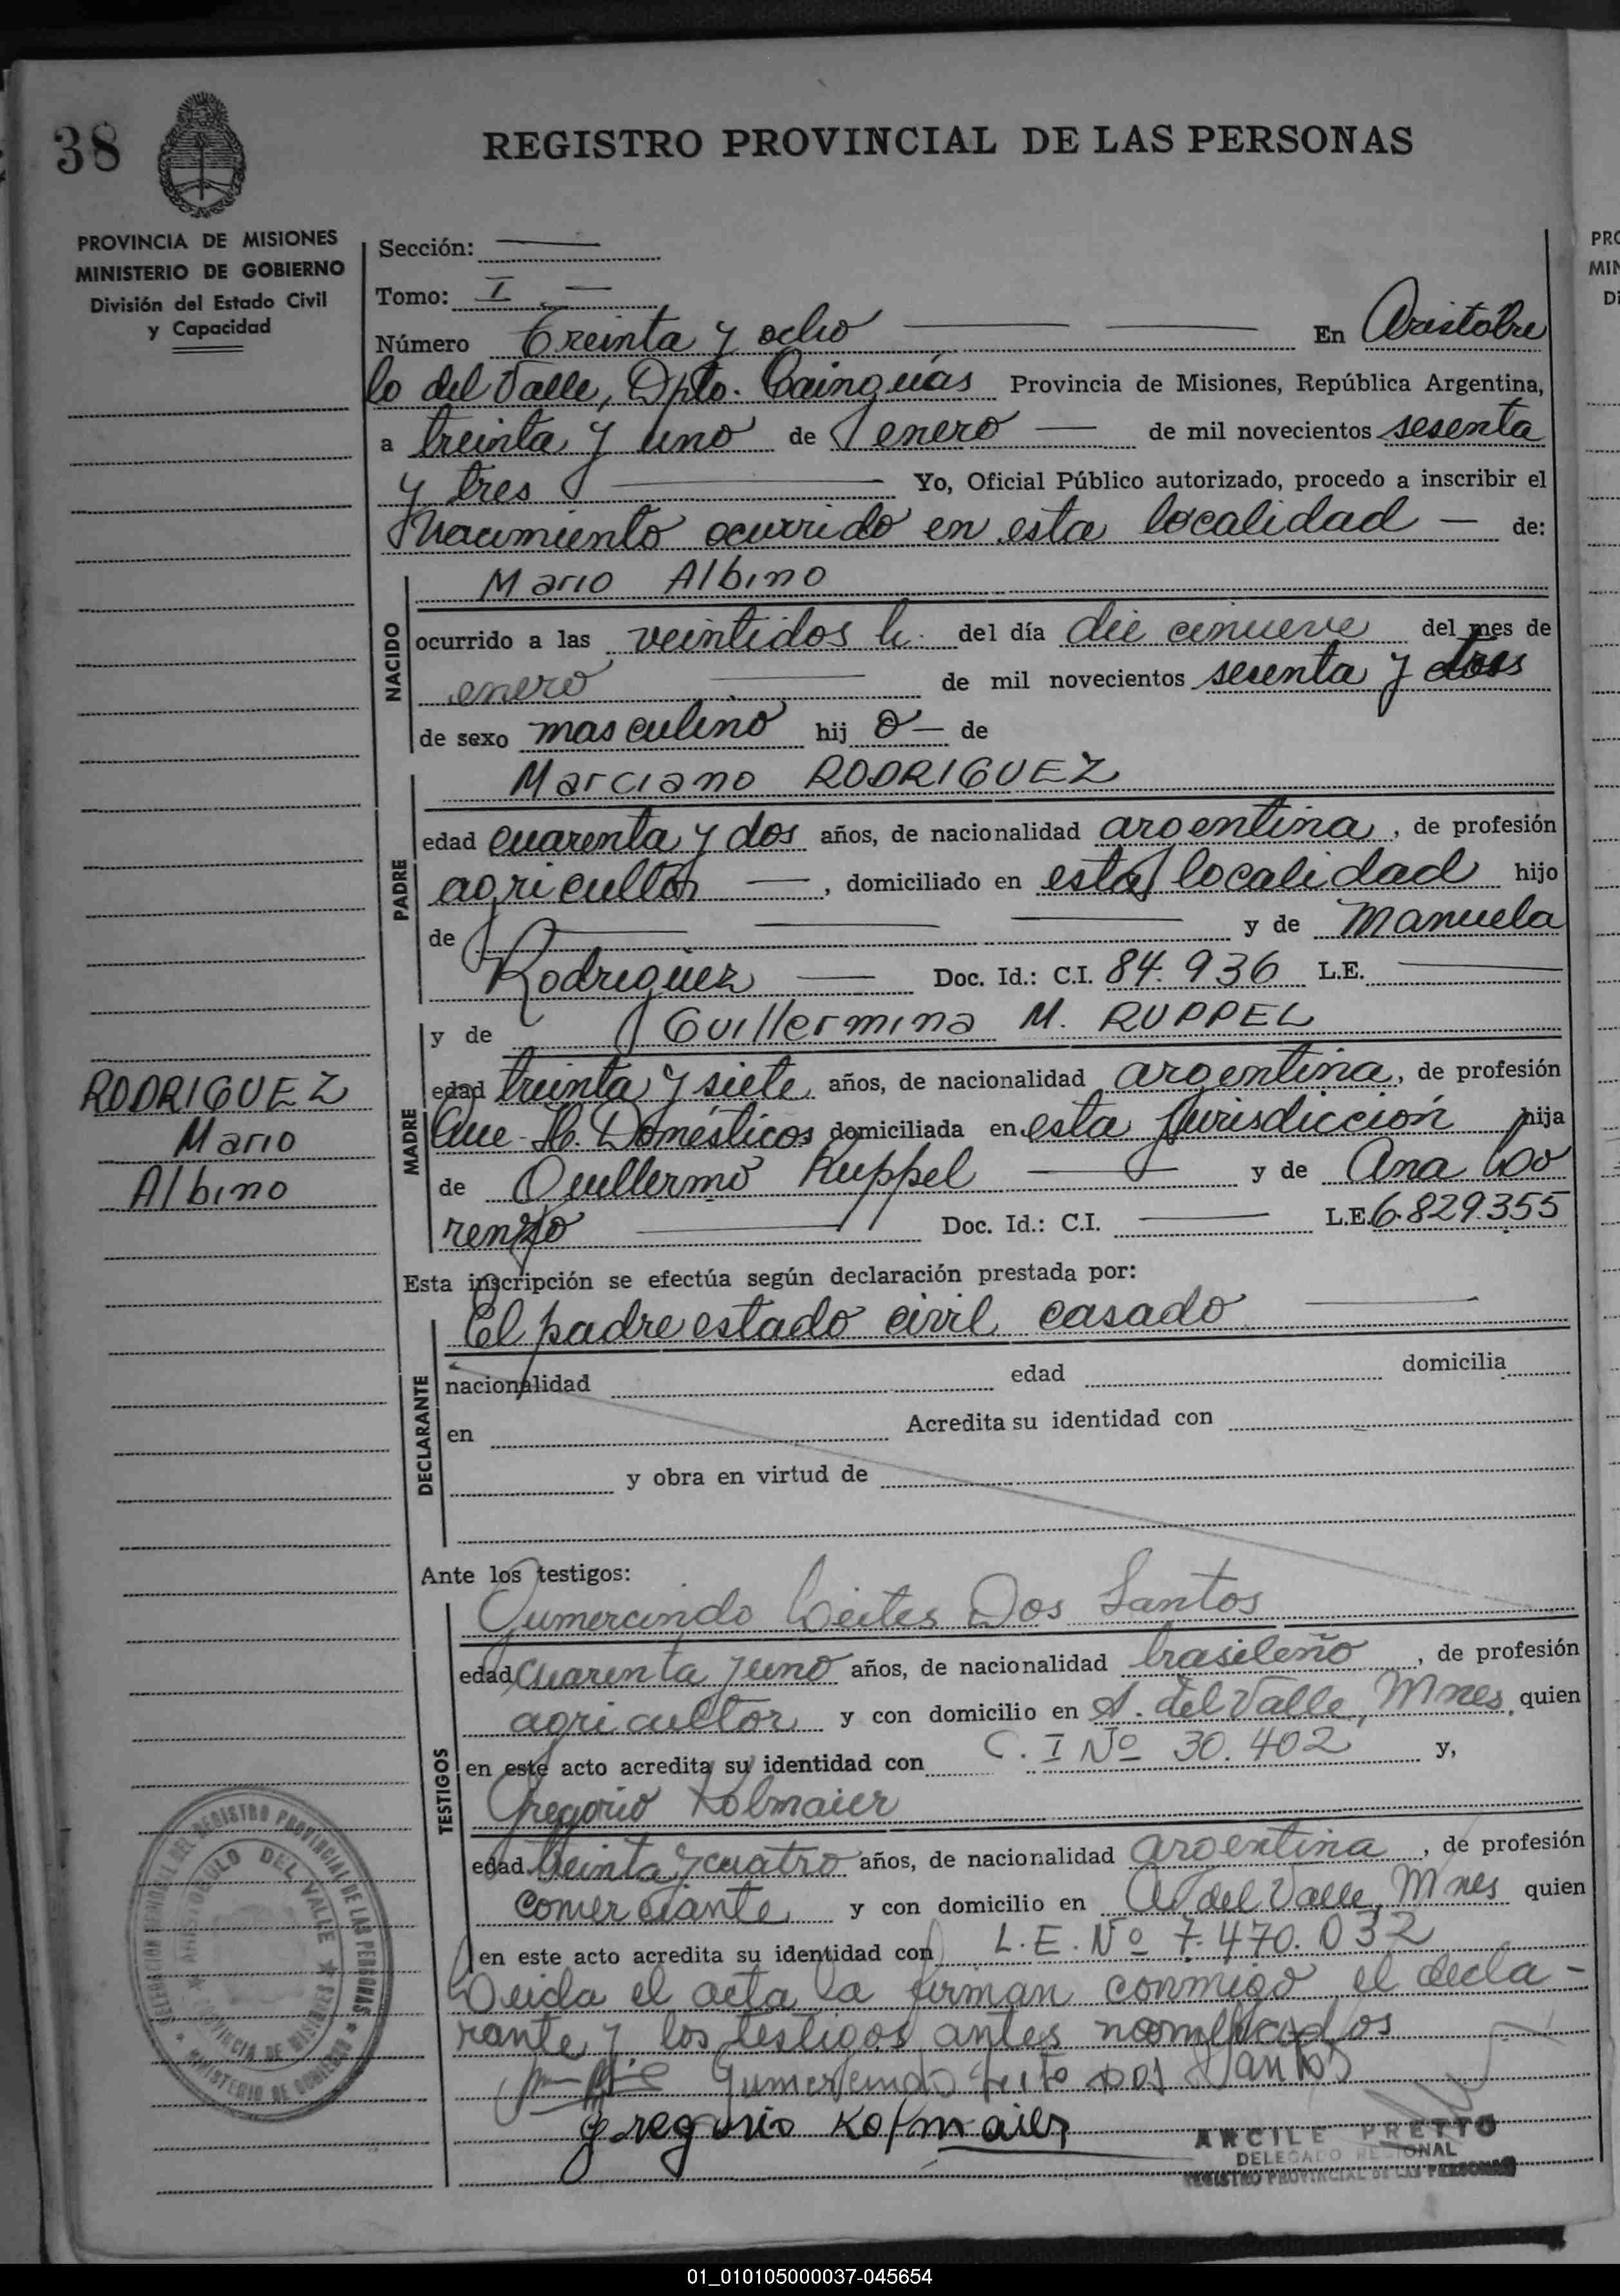 38
REGISTRO PROVINCIAL DE LAS PERSONAS
PROVINCIA DE MISIONES
MINISTERIO DE GOBIERNO
División del Estado Civil
y Capacidad
Sección:
Tomo: I
Número Treinta y ocho En Aristobu
lo del Valle, Dpto. Cainguás Provincia de Misiones, República Argentina,
a treinta y uno de enero de mil novecientos sesenta
y tres Yo, Oficial Público autorizado, procedo a inscribir el
Nacimiento ocurrido en esta localidad de:
NACIDO
Mario Albino
ocurrido a las veintidos h. del día diecinueve del mes de
enero de mil novecientos sesenta y tres
de sexo masculino hij o de
PADRE
Marciano RODRIGUEZ
edad cuarenta y dos años, de nacionalidad argentina, de profesión
agricultor, domiciliado en esta localidad hijo
de y de Manuela
Rodriguez Doc. Id.: C.I. 84.936 L.E.
MADRE
y de Guillermina M. RUPPEL
edad treinta y siete años, de nacionalidad argentina, de profesión
Que H. Domésticos domiciliada en esta Jurisdicción hija
de Guillermo Ruppel y de Ana Lo
renzo Doc. Id.: C.I. L.E. 6.829.355
RODRIGUEZ
Mario
Albino
Esta inscripción se efectúa según declaración prestada por:
DECLARANTE
El padre estado civil casado
nacionalidad edad domicilia
en Acredita su identidad con
y obra en virtud de
Ante los testigos:
TESTIGOS
Gumercindo Leites Dos Santos
edad cuarenta y uno años, de nacionalidad brasileño, de profesión
agricultor y con domicilio en A. del Valle, Mnes, quien
en este acto acredita su identidad con C. I Nº 30.402 y,
Gregorio Kolmaier
edad treinta y cuatro años, de nacionalidad argentina, de profesión
comerciante y con domicilio en A. del Valle, Mnes quien
en este acto acredita su identidad con L.E. Nº 7.470.032
Leida el acta la firman conmigo el decla-
rante y los testigos antes nombrados
Gumercindo Leite Dos Santos
Gregorio Kolmaier
ARCILE PRETTO
DELEGADO REGIONAL
REGISTRO PROVINCIAL DE LAS PERSONAS
DELEGACION REGIONAL DEL REGISTRO PROVINCIAL DE LAS PERSONAS
ARISTOBULO DEL VALLE
PROVINCIA DE MISIONES
MINISTERIO DE GOBIERNO
PRO
MIN
Di
01_010105000037-045654